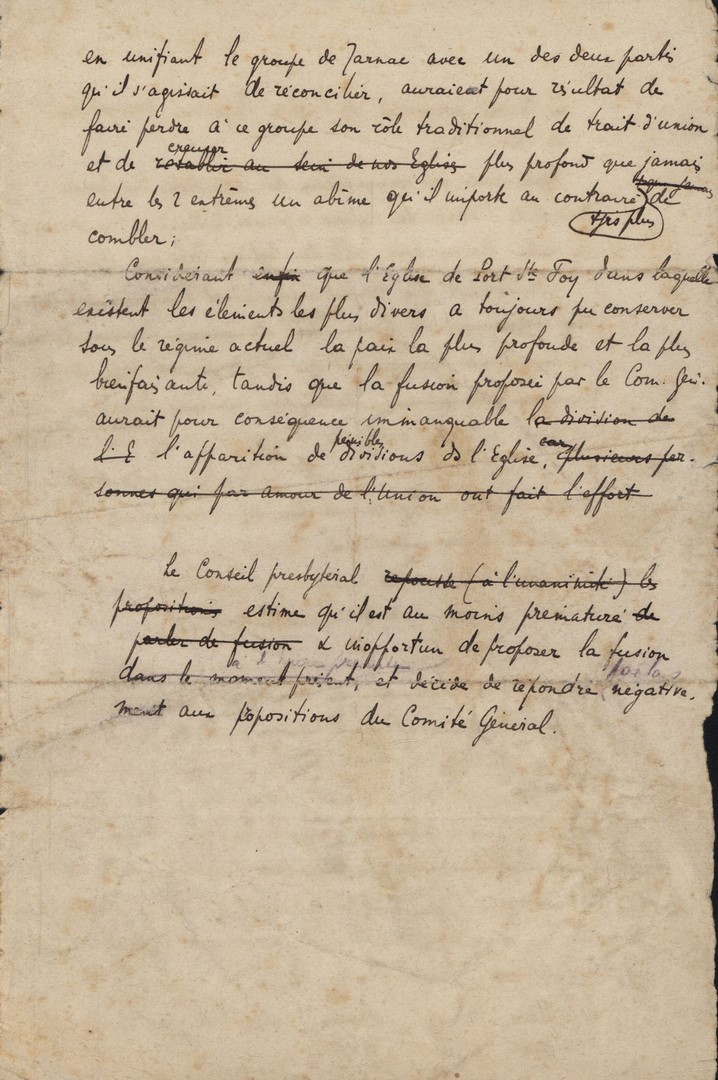 en unifiant le groupe de Jarnac avec un des deux partis
qu'il s'agissait de réconcilier, auraient pour résultat de
faire perdre à ce groupe son rôle traditionnel de trait d'union
creuser
et de rétablir au sein de nos Eglises plus profond que jamais
entre les 2 extrêmes un abîme qu'il importe au contraire de
tjrs plus
combler;
Considérant enfin que l'Eglise de Port Ste Foy dans laquelle
existent les éléments les plus divers a toujours pu conserver
sous le régime actuel la paix la plus profonde et la plus
bienfaisante, tandis que la fusion proposée par le Com. Gén.
aurait pour conséquence immanquable la division de
pénibles car
l'E l'apparition de divisions ds l'Eglise, plusieurs per-
sonnes qui par amour de l'Union ont fait l'effort
Le Conseil presbytéral repousse (à l'unanimité) les
propositions estime qu'il est au moins prématuré de
parler de fusion & inopportun de proposer la fusion
dans le moment présent, et décide de répondre négative-
ment aux popositions du Comité Général.